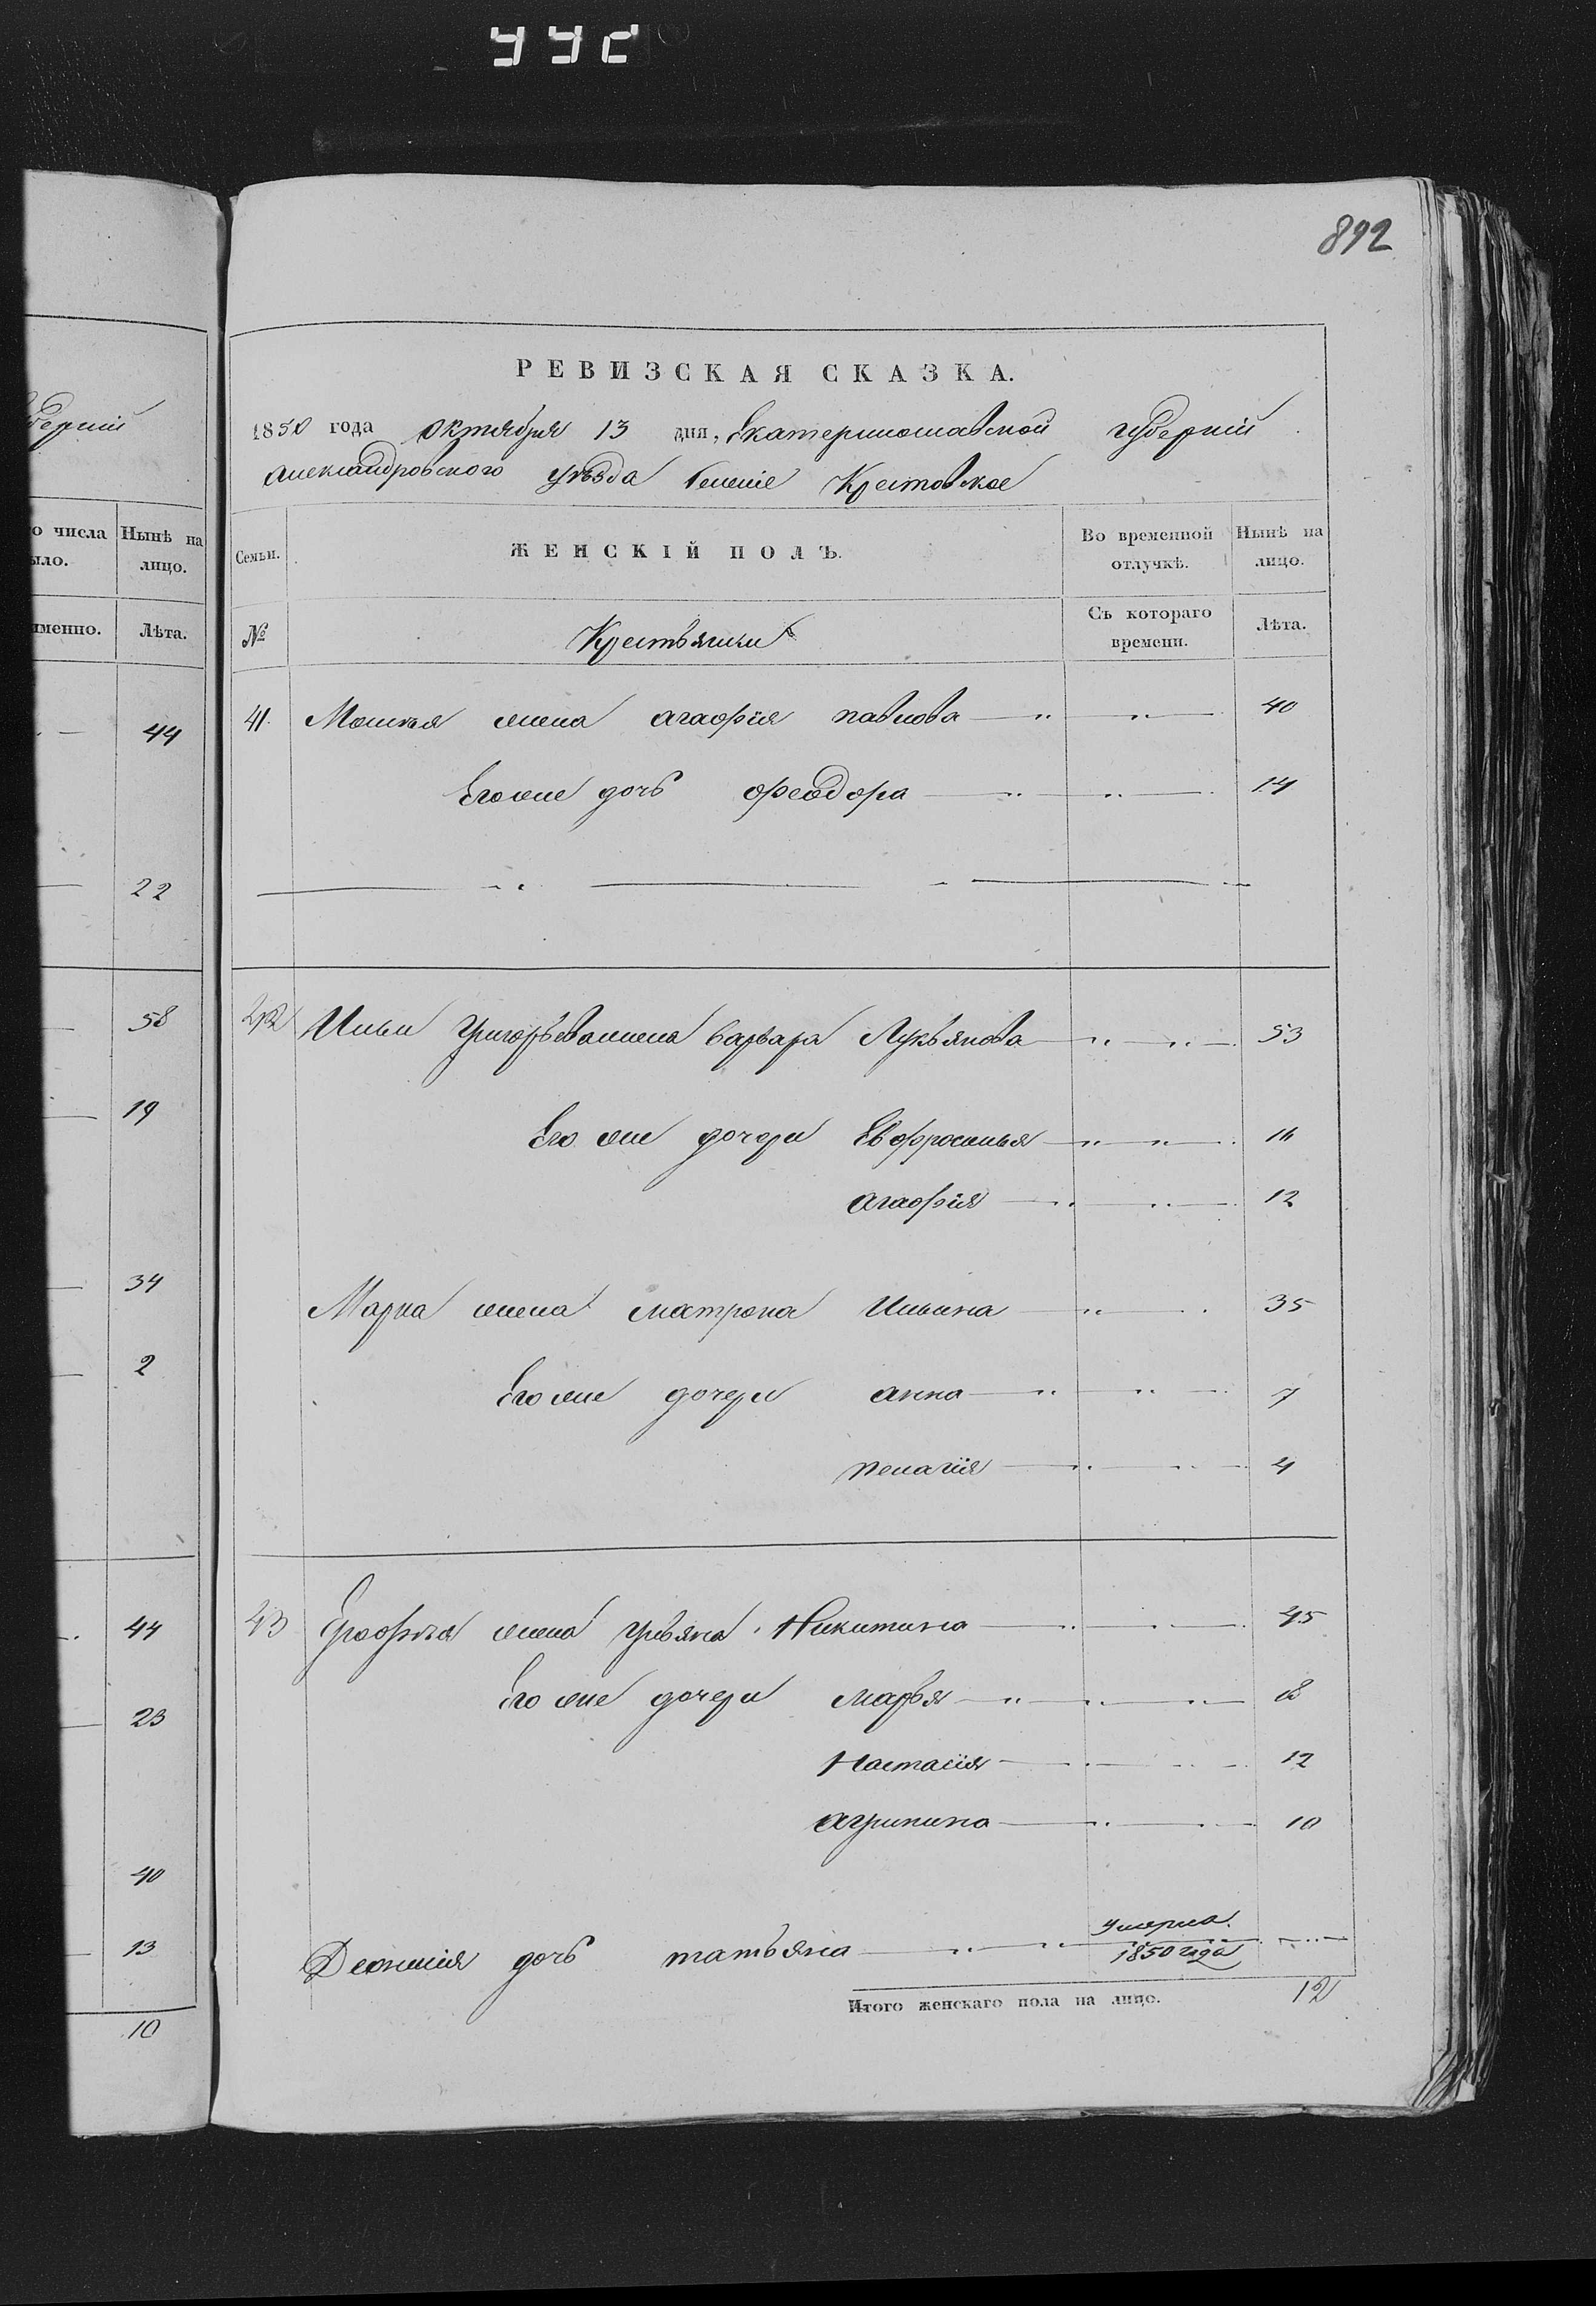 892
РЕВИЗСКАЯ СКАЗКА.
1850 года Октября 13 дня, Екатеринославской губерніи
Александровского уѣзда Крестовское
о числа
ыло.
Нынѣ на
лицо.
именно.
Лѣта.
Семьи.
ЖЕНСКІЙ ПОЛЪ.
Во временной
отлучкѣ.
Нынѣ на
лицо.
№
Крестьянки
Съ котораго
времени.
Лѣта.
41. жена агафія павлова 40
Его же дочь феодора 14
42 Ильи Григорьева жена варвара Лукьянова 53
Его же дочери Евфросинья 16
агафія 12
Марка жена матрона Ильина 35
Его же дочери анна 7
пелагія 4
43 Ерофѣя жена ульяна Никитина 45
Его же дочери марья 18
Настасія 12
агрипина 10
Деонисія дочь татьяна умерла
1850 года
Итого женскаго пола на лицо. 12
губерніи
44
22
58
19
34
2
44
23
40
13
10